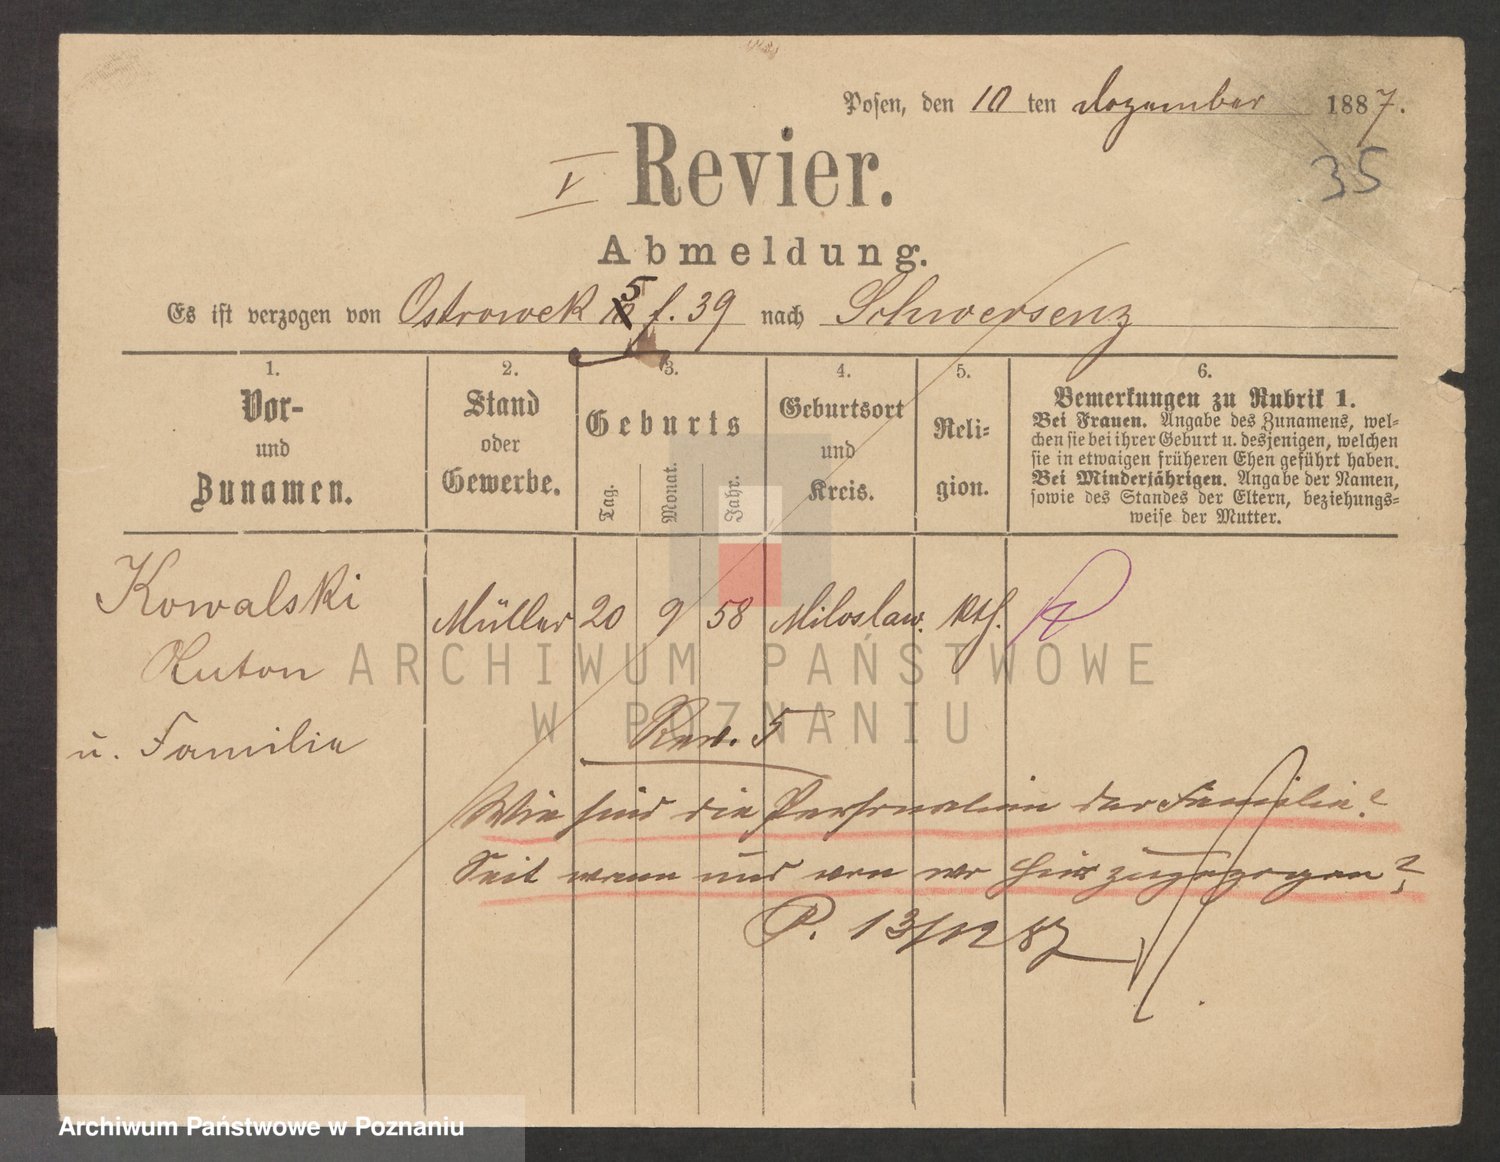 Posen, den 10 ten Dezember 1887.
35
V Revier.
Abmeldung.
Es ist verzogen von Ostrowek 5 f. 39 nach Schwersenz
1.
Vor-
und
Zunamen.
2.
Stand
oder
Gewerbe.
3.
Geburts
Tag.
Monat.
Jahr.
4.
Geburtsort
und
Kreis.
5.
Reli-
gion.
6.
Bemerkungen zu Rubrik 1.
Bei Frauen. Angabe des Zunamens, wel-
chen sie bei ihrer Geburt u. desjenigen, welchen
sie in etwaigen früheren Ehen geführt haben.
Bei Minderjährigen. Angabe der Namen,
sowie des Standes der Eltern, beziehungs-
weise der Mutter.
Kowalski
Anton
u. Familie
Müller 20 9 58 Miloslaw. kth.
Rev. 5
Wie sind die Personalien der Familie?
Seit wann und von wo hier zugezogen?
P. 13/12 87
ARCHIWUM PAŃSTWOWE
W POZNANIU
Archiwum Państwowe w Poznaniu